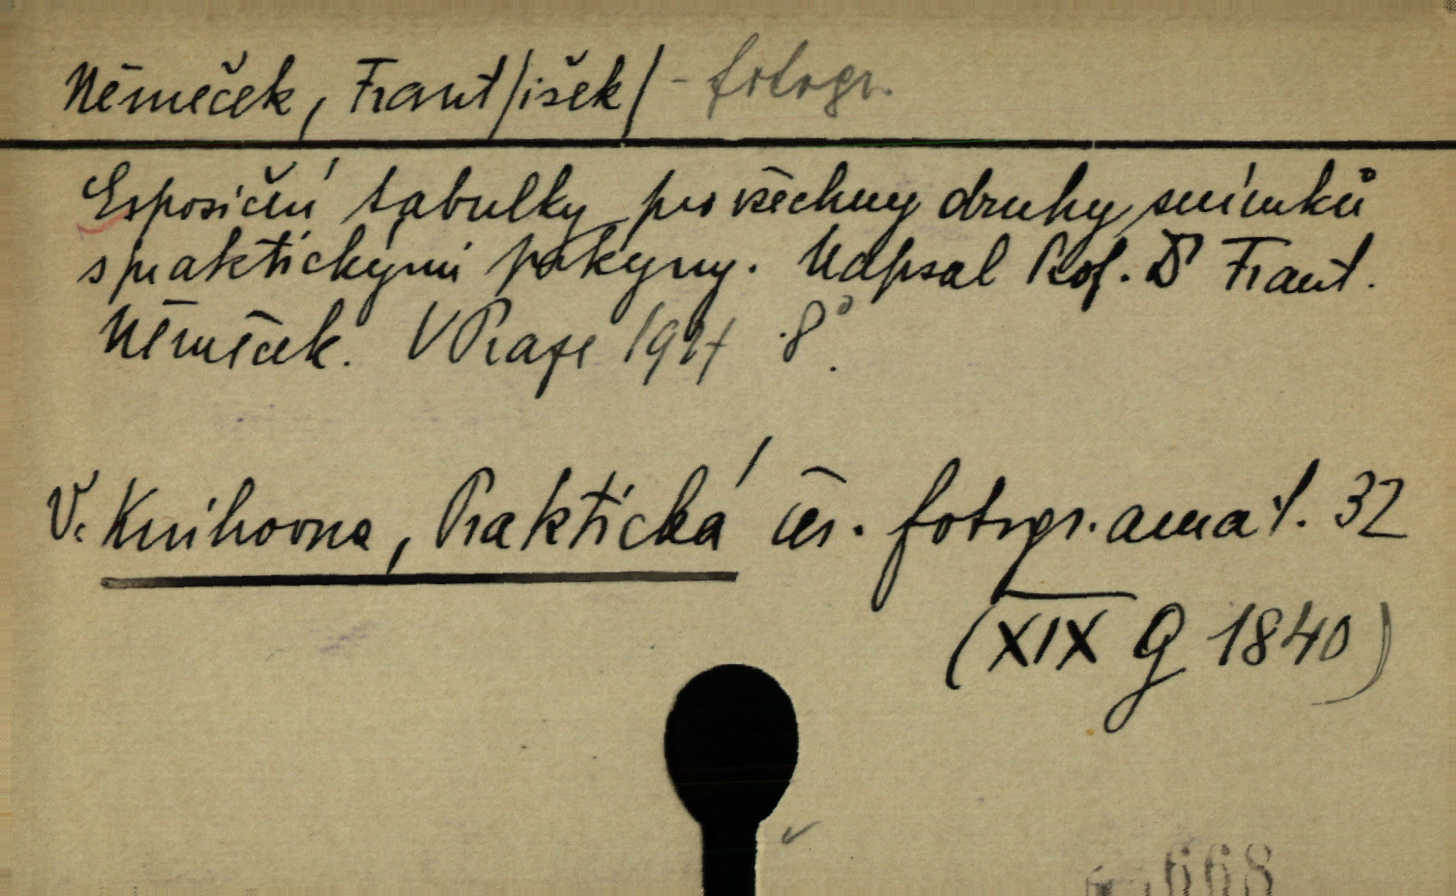 Němeček, Frant/išek/ - fotogr.
Exposiční tabulky pro všechny druhy snímků
s praktickými pokyny. Napsal Prof. Dr Frant.
Němeček. V Praze 1924 8°.
V. Knihovna, Praktická čes. fotogr. amat. 32
(XIX G 1840)
668